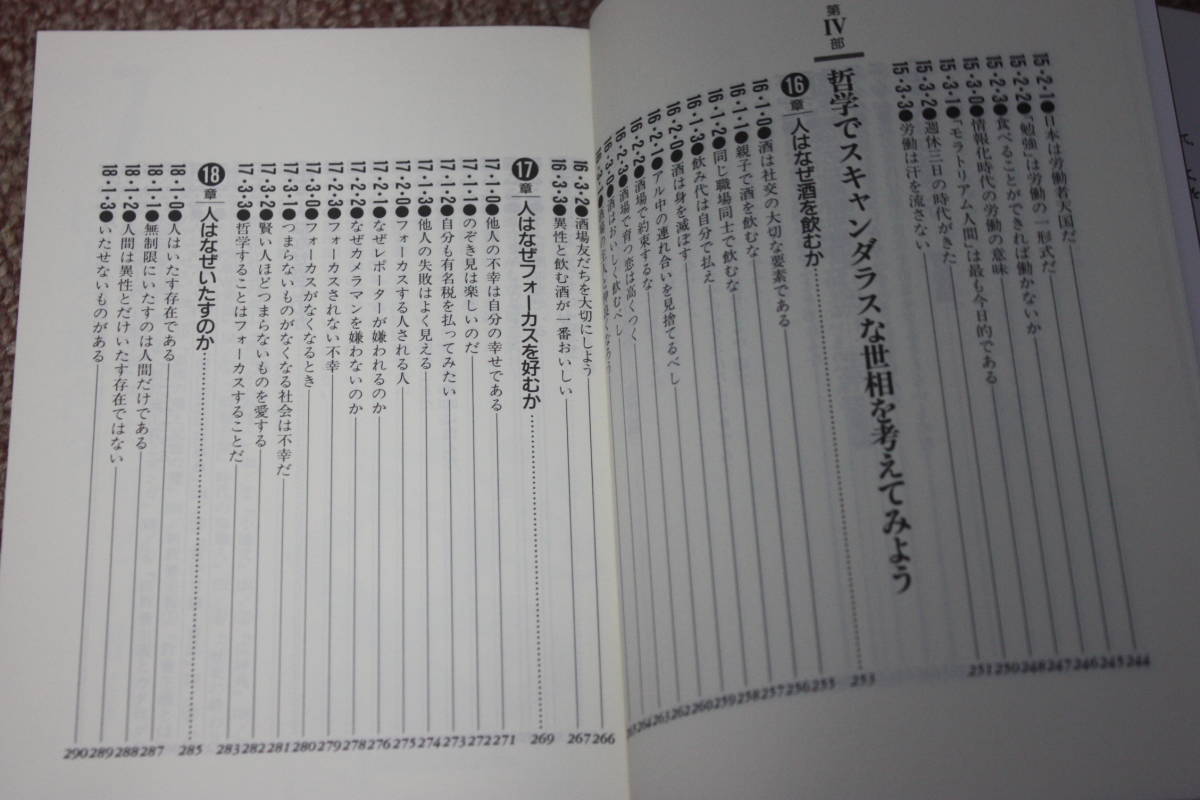 15・2・1●日本は労働者天国だ 244
15・2・2●「勉強」は労働の一形式だ 245
15・2・3●食べることができれば働かないか 246
15・3・0●情報化時代の労働の意味 247
15・3・1●「モラトリアム人間」は最も今日的である 248
15・3・2●週休三日の時代がきた 250
15・3・3●労働は汗を流さない 251
第Ⅳ部 哲学でスキャンダラスな世相を考えてみよう
16章 人はなぜ酒を飲むか 253
16・1・0●酒は社交の大切な要素である 255
16・1・1●親子で酒を飲むな 256
16・1・2●同じ職場同士で飲むな 257
16・1・3●飲み代は自分で払え 258
16・2・0●酒は身を滅ぼす 259
16・2・1●アル中の連れ合いを見捨てるべし 260
16・2・2●酒場で約束するな 262
16・2・3●酒場で育つ恋は高くつく 263
16・3・0●酒はおいしく飲むべし 264
16・3・1● 265
16・3・2●酒場友だちを大切にしよう 266
16・3・3●異性と飲む酒が一番おいしい 267
17章 人はなぜフォーカスを好むか 269
17・1・0●他人の不幸は自分の幸せである 271
17・1・1●のぞき見は楽しいのだ 272
17・1・2●自分も有名税を払ってみたい 273
17・1・3●他人の失敗はよく見える 274
17・2・0●フォーカスする人される人 275
17・2・1●なぜレポーターが嫌われるのか 276
17・2・2●なぜカメラマンを嫌わないのか 278
17・2・3●フォーカスされない不幸 279
17・3・0●フォーカスがなくなるとき 280
17・3・1●つまらないものがなくなる社会は不幸だ 281
17・3・2●賢い人ほどつまらないものを愛する 282
17・3・3●哲学することはフォーカスすることだ 283
18章 人はなぜいたすのか 285
18・1・0●人はいたす存在である 287
18・1・1●無制限にいたすのは人間だけである 288
18・1・2●人間は異性とだけいたす存在ではない 289
18・1・3●いたせないものがある 290